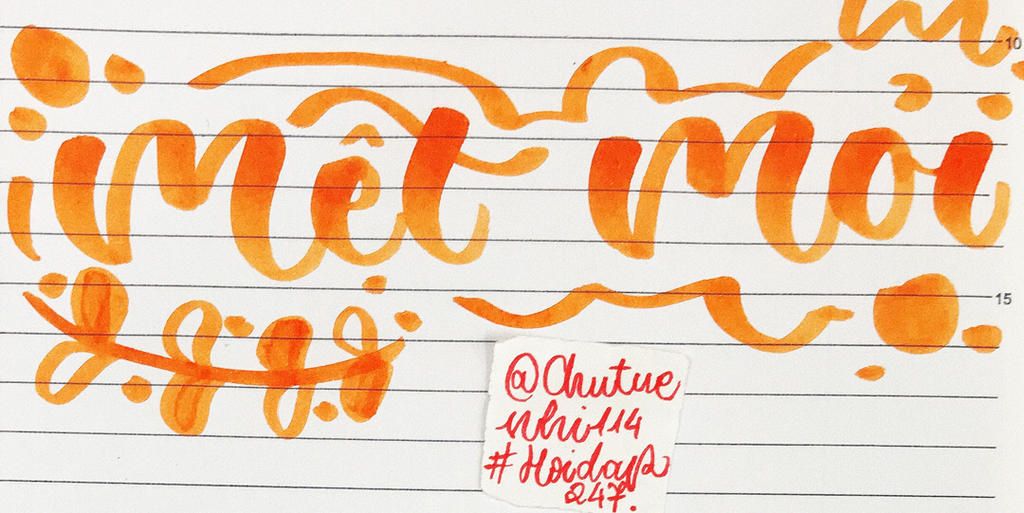 10
Mệt mỏi
15
@Chutue
nhi114
#Hoidap
247.